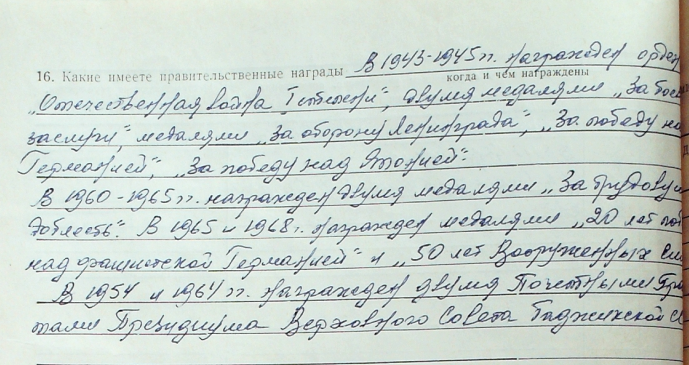 16. Какие имеете правительственные награды В 1943-1945 гг. награжден орден
когда и чем награждены
„Отечественная война I степени", двумя медалями „За бое
заслуги", медалями „За оборону Ленинграда", „За победу на
Германией", „За победу над Японией".
В 1960-1965 гг. награжден двумя медалями „За трудову
доблесть". В 1965 и 1968 г. награжден медалями „20 лет по
над фашистской Германией" и „50 лет Вооруженных Сил
В 1954 и 1964 гг. награжден двумя Почетными Гра
тами Президиума Верховного Совета Таджикской С